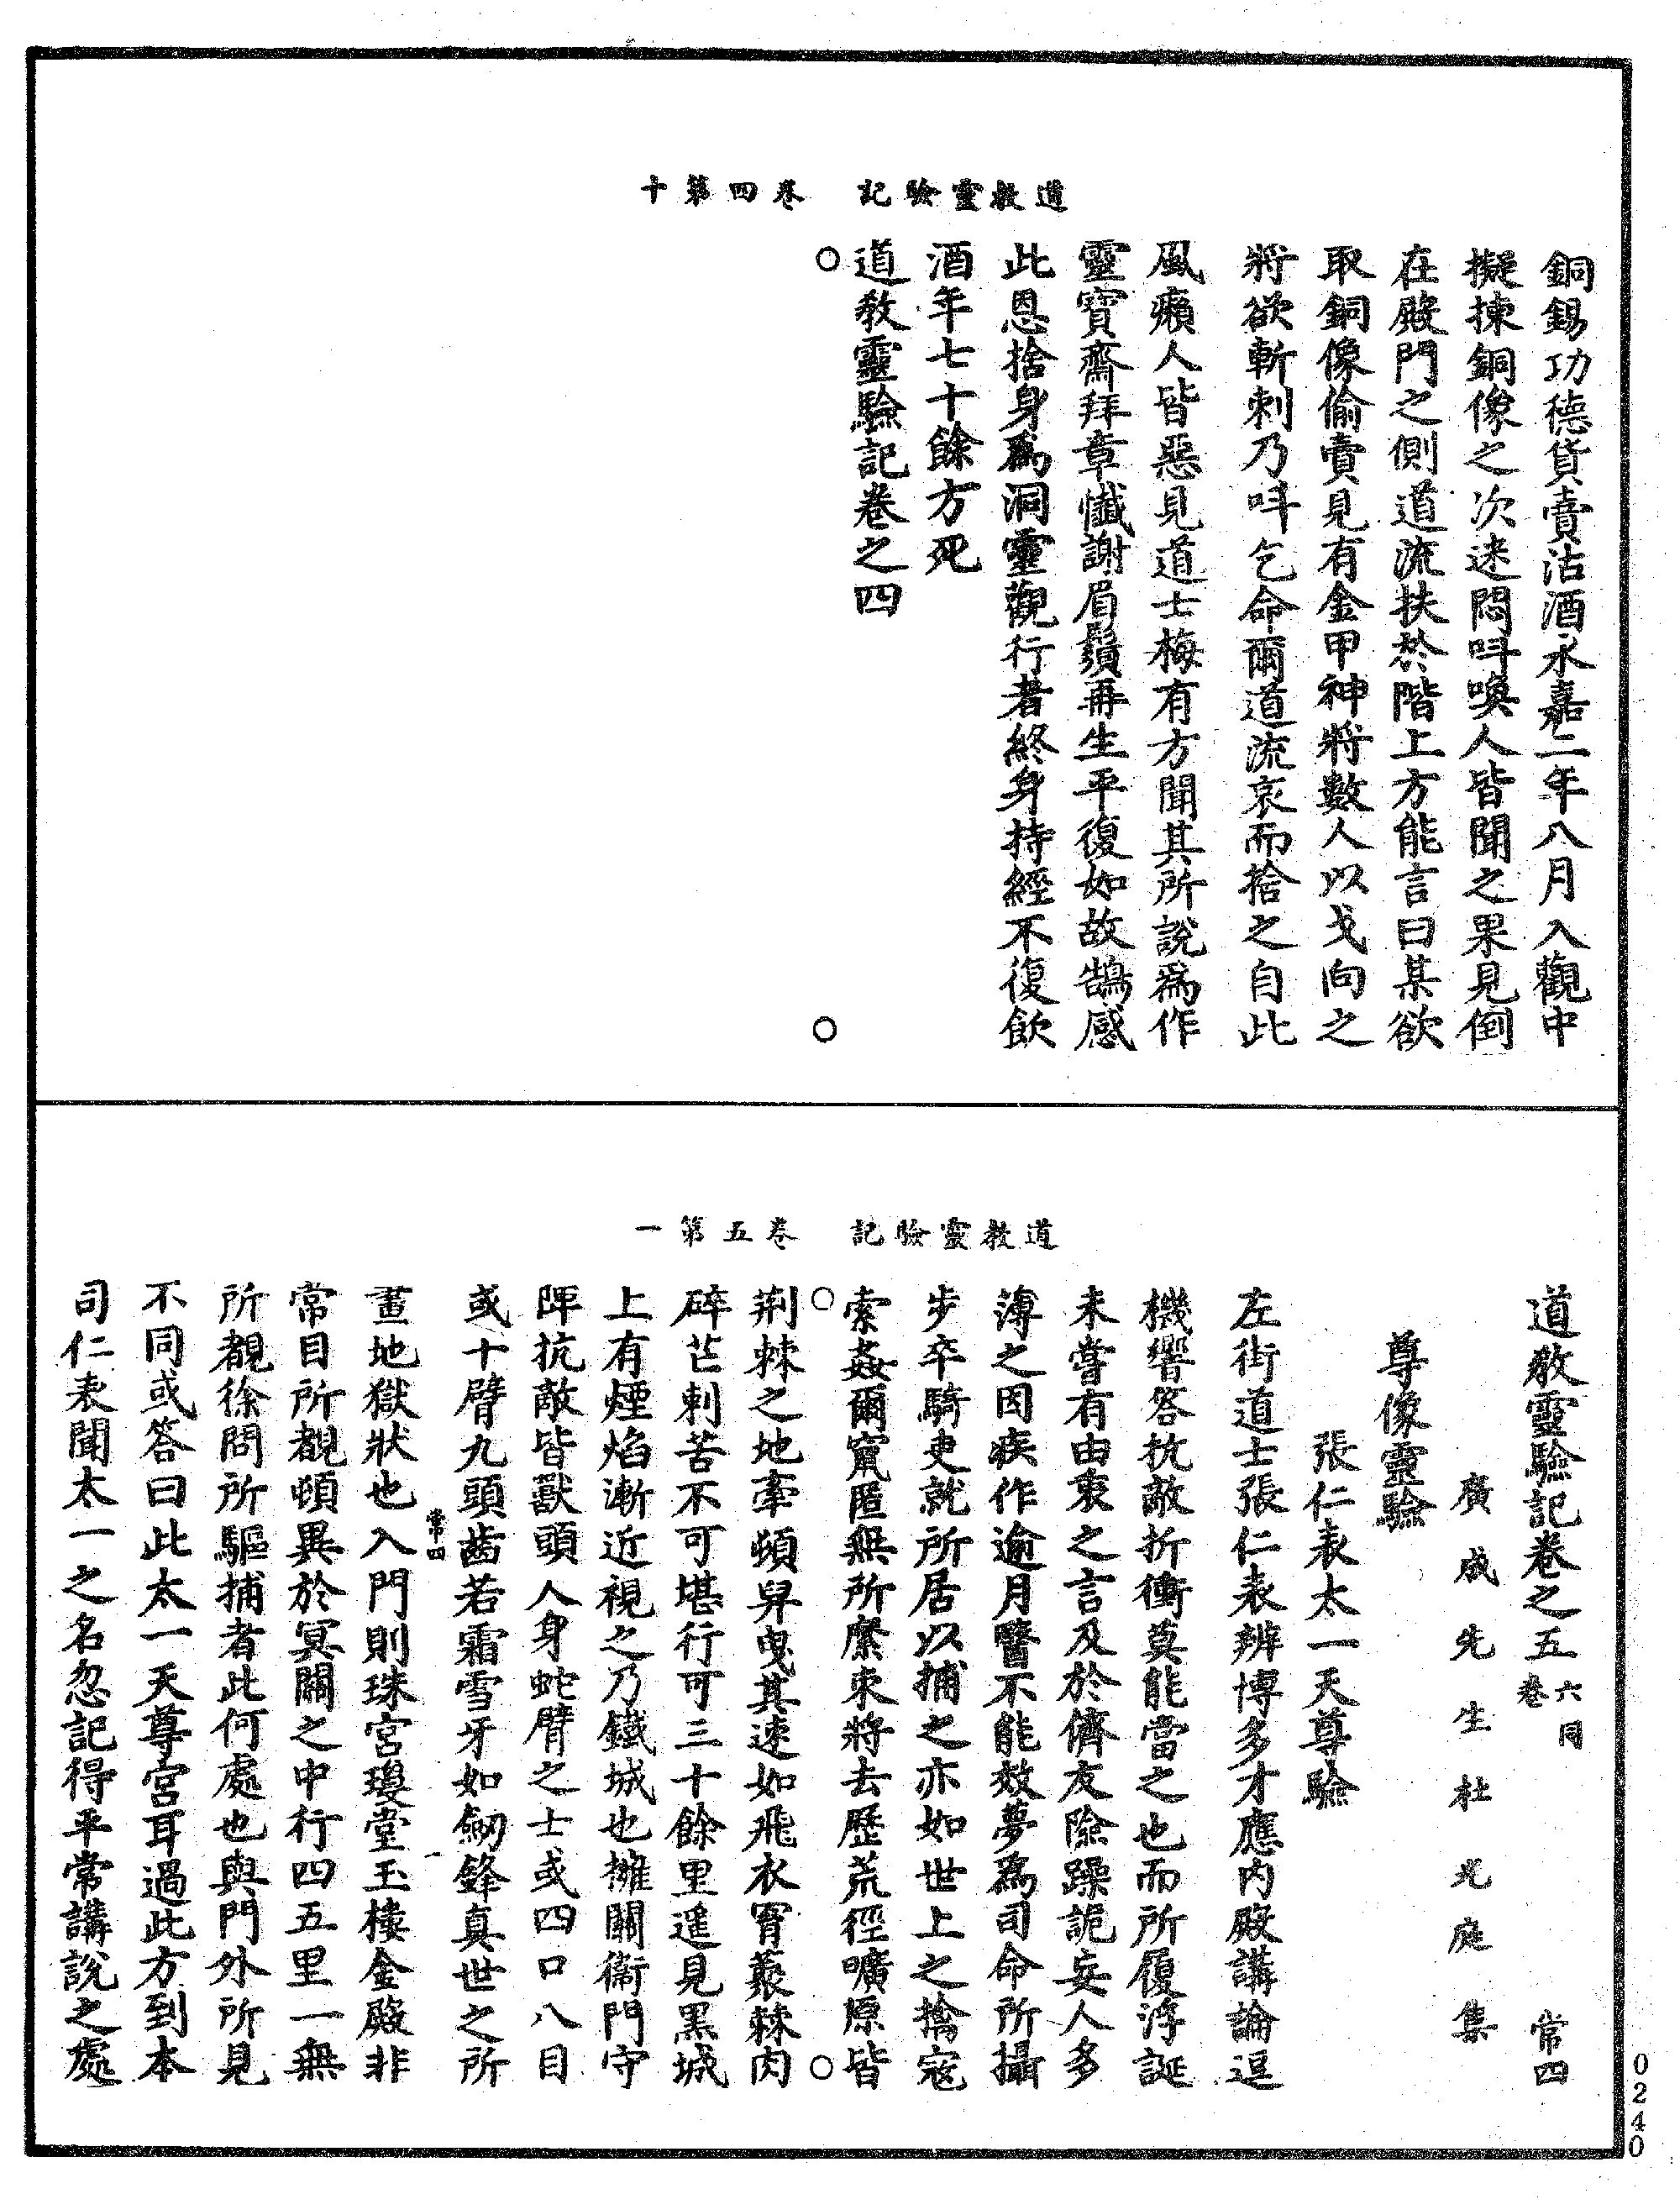 道教靈驗記 卷四第十
銅錫功德貨賣沽酒永嘉二年八月入觀中
擬揀銅像之次迷悶呌喚人皆聞之果見倒
在殿門之側道流扶於階上方能言曰某欲
取銅像偷賣見有金甲神將數人以戈向之
將欲斬刺乃呌乞命爾道流哀而捨之自此
風癩人皆惡見道士梅有方聞其所說爲作
靈寶齋拜章懺謝眉鬚再生平復如故鵠感
此恩捨身爲洞靈觀行者終身持經不復飲
酒年七十餘方死
道教靈驗記卷之四
道教靈驗記 卷五第一
道教靈驗記卷之五 六同卷 常四
廣成先生杜光庭集
尊像靈驗
張仁表太一天尊驗
左街道士張仁表辨博多才應內殿講論逞
機響答抗敵折衝莫能當之也而所履浮誕
未嘗有由衷之言及於儕友險躁詭妄人多
薄之因疾作逾月醫不能效夢爲司命所攝
步卒騎吏就所居以捕之亦如世上之擒寇
索姦爾竄匿無所縻束將去歷荒徑曠原皆
荊棘之地牽頓舁曳其速如飛衣罥叢棘肉
碎芒刺苦不可堪行可三十餘里遥見黑城
上有煙焰漸近視之乃鐵城也擁關衞門守
陴抗敵皆獸頭人身蛇臂之士或四口八目
或十臂九頭齒若霜雪牙如劒鋒真世之所
畫地獄狀也入門則珠宮瓊堂玉樓金殿非
常四 一
常目所覩頓異於冥關之中行四五里一無
所覩徐問所驅捕者此何處也與門外所見
不同或答曰此太一天尊宮耳過此方到本
司仁表聞太一之名忽記得平常講說之處
0240